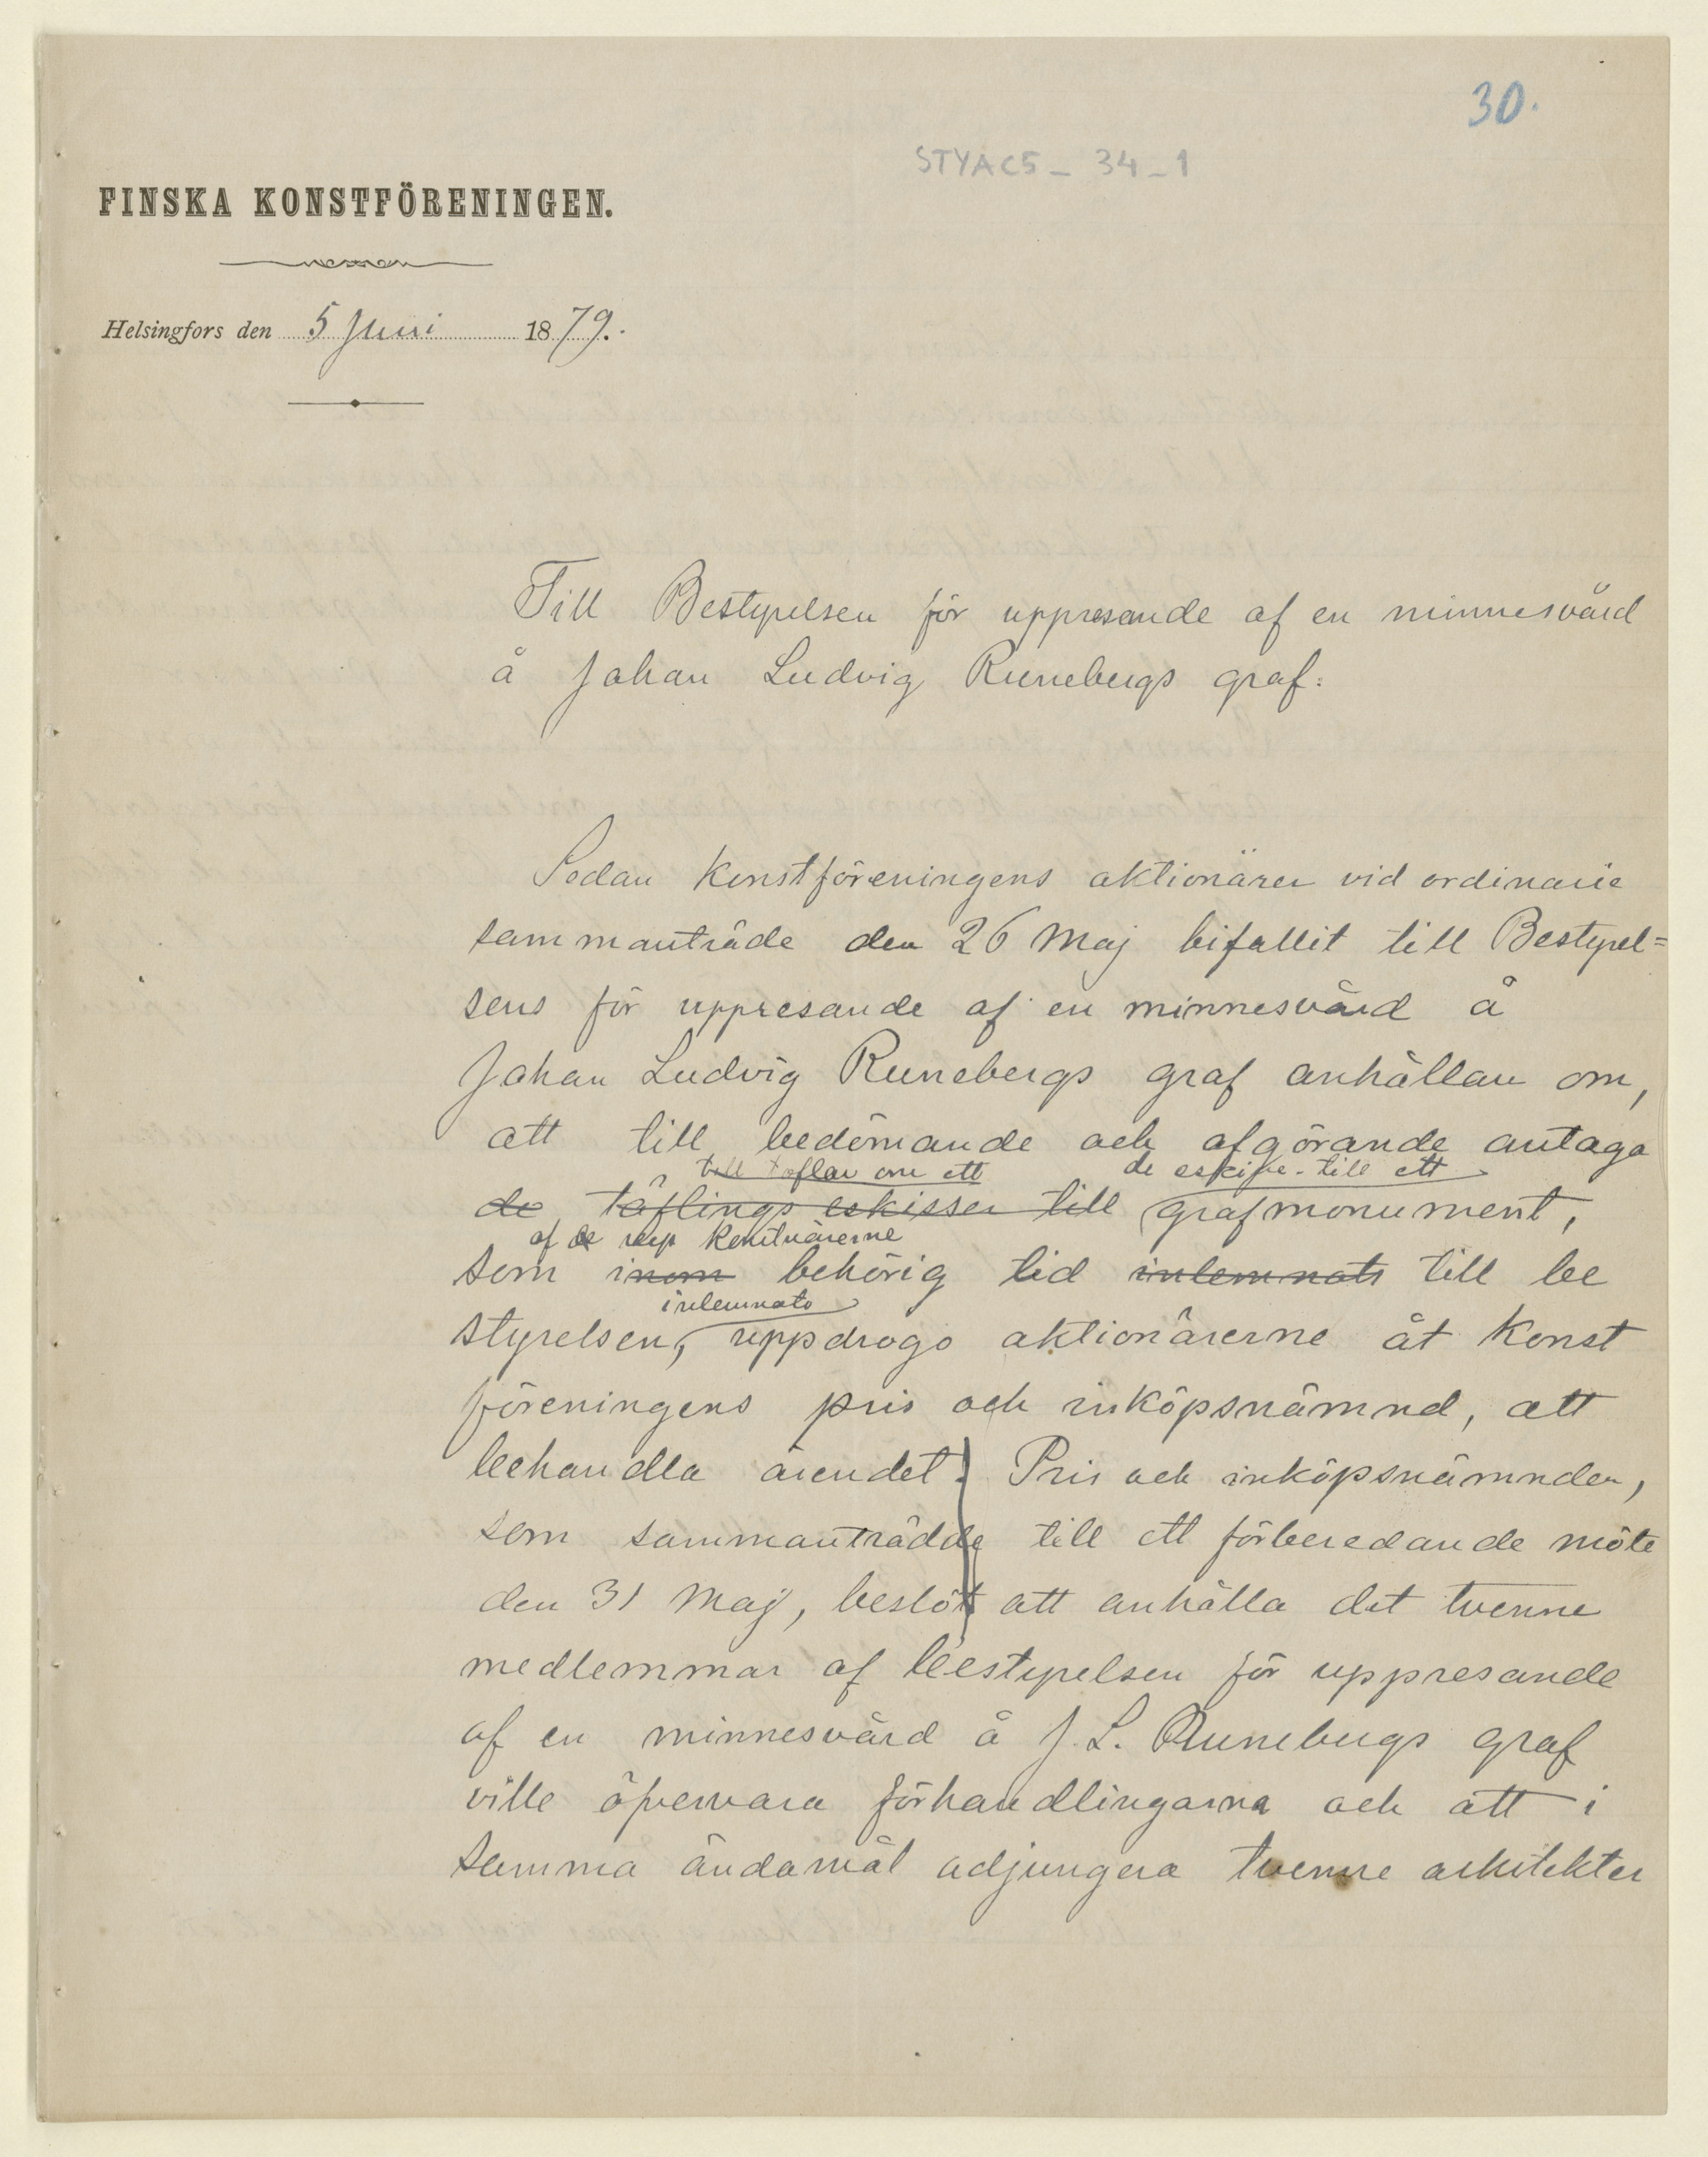 30.
STYAC5_34_1
FINSKA KONSTFÖRENINGEN.
Helsingfors den 5 Juni 1879.
Till Bestyrelsen för uppresande af en minnesvård
å Johan Ludvig Runebergs graf.
Sedan Konstföreningens aktionärer vid ordinarie
sammanträde den 26 Maj bifallit till Bestyrel=
sens för uppresande af en minnesvård å
Johan Ludvig Runebergs graf anhållan om,
att till bedömande och afgörande antaga
till täflan om ett de eskisse till ett
de täflings eskisser till grafmonument,
af de
som inom behörig tid inlemnats till be
inlemnats
styrelsen, uppdrogo aktionärerne åt Konst
föreningens pris och inköpsnämnd, att
behandla ärendet. Pris och inköpsnämnden,
som sammanträdde till ett förberedande möte
den 31 Maj, beslöt att anhålla det tvenne
medlemmar af bestyrelsen för uppresande
af en minnesvård å J. L. Runebergs graf
ville öfvervara förhandlingarna och att i
samma ändamål adjungera tvenne arkitekter